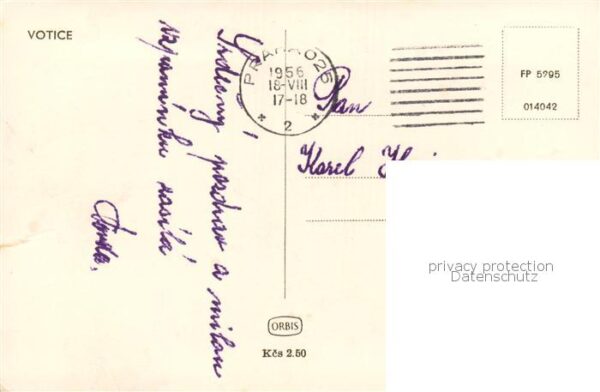 VOTICE
Srdečný pozdrav a milou
vzpomínku zasílá
PRAHA 025
1956
18-VIII
17-18
2
Pan
Karel
FP 5295
014042
privacy protection
Datenschutz
ORBIS
Kčs 2.50